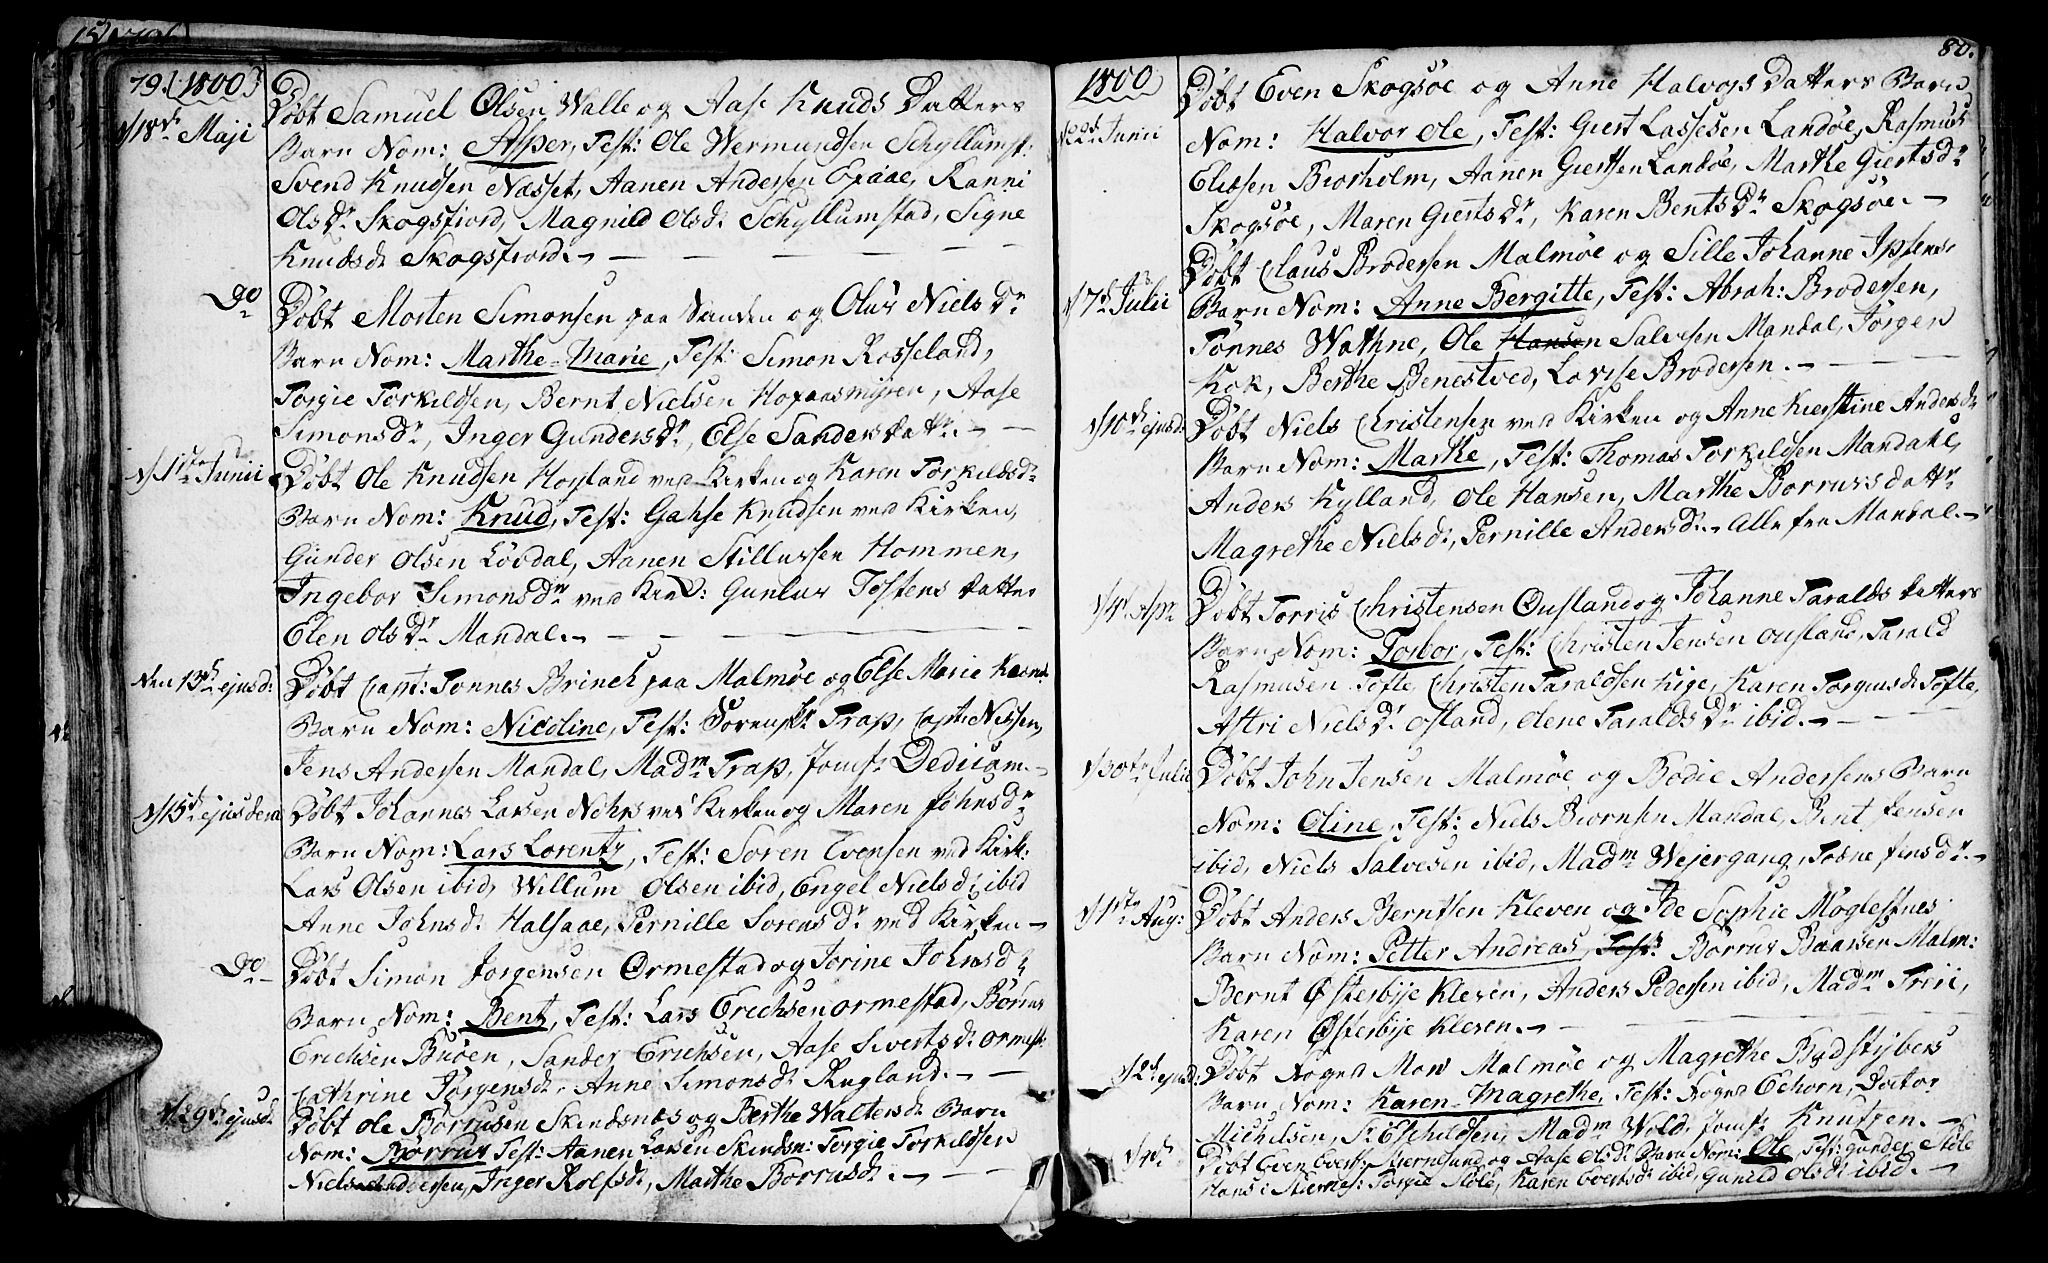 79. 1800
d/18de Maji
Døbt Samuel Olsen Walle og Aase Knuds Datters
Barn Nom: Asper, Test: Ole Wermundsen Schyllumst:
Svend Knudsen Næsset, Aanen Andersen Efaae, Ranni
Olsdr Skogsfiord, Magnild Olsdr Schyllumstad, Signe
Knudsdr Skogsfiord.
Do
Døbt Morten Simonsen paa Sanden og Olür Niels Dr
Barn Nom: Marthe-Marie, Test: Simon Rosseland,
Torgie Torkildsen, Bernt Nielsen Hofaasmyren, Aase
Simonsdr, Inger Gundersdr, Else Sandersdattr.
d/1ste Junii
Døbt Ole Knudsen Hogland ved Kirken og Karen Torkildsdr
Barn Nom: Knud, Test: Gahse Knudsen ved Kirken,
Günder Olsen Løvdal, Aanen Stillufsen Hommen,
Ingebor Simonsdr ved Kirk: Gunlur Tostens datter
Elen Olsdr Mandal.
den 13de ejusd:
Døbt Capt: Tønnes Brinch paa Malmøe og Else Marie
Barn Nom: Nicoline, Test: Sorenskr Trap, Capt: Nissen,
Jens Andersen Mandal, Madm Trap, Jomfr Dedicam.
d/15de ejusdem
Døbt Johannes Larsen Nohr ved Kirken og Maren Johnsdr
Barn Nom: Lars Lorentz, Test: Soren Evensen ved Kirk:
Lars Olsen ibid, Willum Olsen ibid, Engel Nielsdr ibid
Anne Johnsdr Halsaae, Pernille Sorensdr ved Kirken
Do
Døbt Simon Jorgensen Ormestad og Jorine Johnsdr
Barn Nom: Bent, Test: Lars Erichsen Ormestad, Børrus
Erichsen Buøen, Sander Erichsen, Aase Sivertsdr Ormest:
Cathrine Jørgensdr, Anne Simonsdr Rugland.
d/29de ejusd:
Døbt Ole Børrusen Skindsnæs og Berthe Waltersdr Barn
Nom: Børrus Test: Aanen Larsen Skindsn: Torgie Torkildsen
Niels Andersen, Inger Rolfsdr, Marthe Borrusdr.
80.
1800
d/22de Junii
Døbt Even Skogsøe og Anne Halvors Datters Barn
Nom: Halvor Ole, Test: Giert Lassesen Landøe, Rasmus
Eliæsen Biorholm, Aanen Giertsen Landøe, Marthe Giertsdr
Skogsøe, Maren Giertsdr, Karen Bentsdr Skogsøe.
d/7de Julii
Døbt Claus Brodersen Malmøe og Sille Johanne Ipsens
Barn Nom: Anne Bergitte, Test: Abrah: Brodersen,
Tønnes Wathne, Ole Hansen Salvesen Mandal, Jørgen
Kok, Berthe Benestved, Lovise Brodersen.
d/10de ejusd:
Døbt Niels Christensen ved Kirken og Anne Kierstine Andersdr
Barn Nom: Marthe, Test: Thomas Torkildsen Mandahl,
Anders Kylland, Ole Hansen, Marthe Borrusdattr
Magrethe Nielsdr, Pernille Andersdr. Alle fra Mandal.
Døbt Torris Christensen Ousland og Johanne Taralds datters
Barn Nom: Torbor, Test: Christen Jensen Ousland, Tarald
Rasmusen Tofte, Christen Taraldsen Kige, Karen Torgiusdr Tofte,
Astri Nielsdr Osland, Olene Taraldsdr ibid.
d/30te Julii
Døbt John Jensen Malmøe og Bodie Andersens Barn
Nom: Oline, Test: Niels Biornsen Mandal, Bent Jensen
ibid, Niels Salvesen ibid, Madm Wejergang, Tosne Jensdr.
d/1ste Aug:
Døbt Anders Berntsen Kleven og Ide Sophie Møglestues
Barn Nom: Petter Andreas, Test: Børrus Baarsen Malm:
Bernt Østerbye Kleven, Anders Pedersen ibid, Madm Friri,
Karen Østerbye Kleven.
d/2de ejusd:
Døbt Rogns Mow Malmøe og Magrethe Bydstybers
Barn Nom: Karen-Magrethe, Test: Rogns Echorn, Doctor
Michelsen, Sr Eschildsen, Madm Wold, Jomfr Knutzen.
d/4de
Døbt Even Evertsen Stiernesund og Aase Olsdr Barn Nom: Ole, Test: Gunder Støle
Hans i Stiernes: Torgie Støle, Karen Evertsdr ibid, Gunild Olsdr ibid.